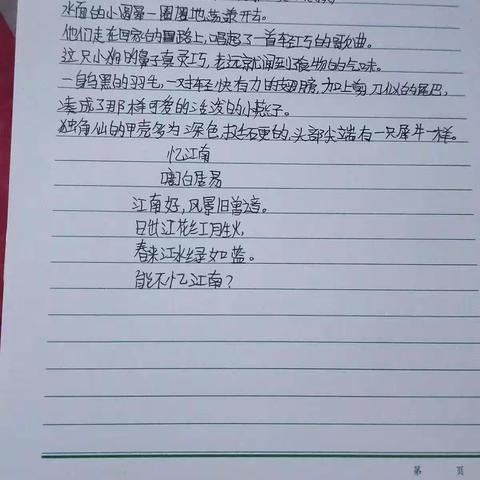 水面的小圆晕一圈圈地荡漾开去。
他们走在回家的路上,唱起了一首轻巧的歌曲。
这只小狗的鼻子真灵巧,老远就闻到了食物的气味。
一身乌黑的羽毛,一对轻快有力的翅膀,加上剪刀似的尾巴,
凑成了那样可爱的活泼的小燕子。
独角仙的甲壳多为深色,挺硬的,头部尖端有一只犀牛一样。
忆江南
唐白居易
江南好,风景旧曾谙。
日出江花红月胜火,
春来江水绿如蓝。
能不忆江南?
第 页